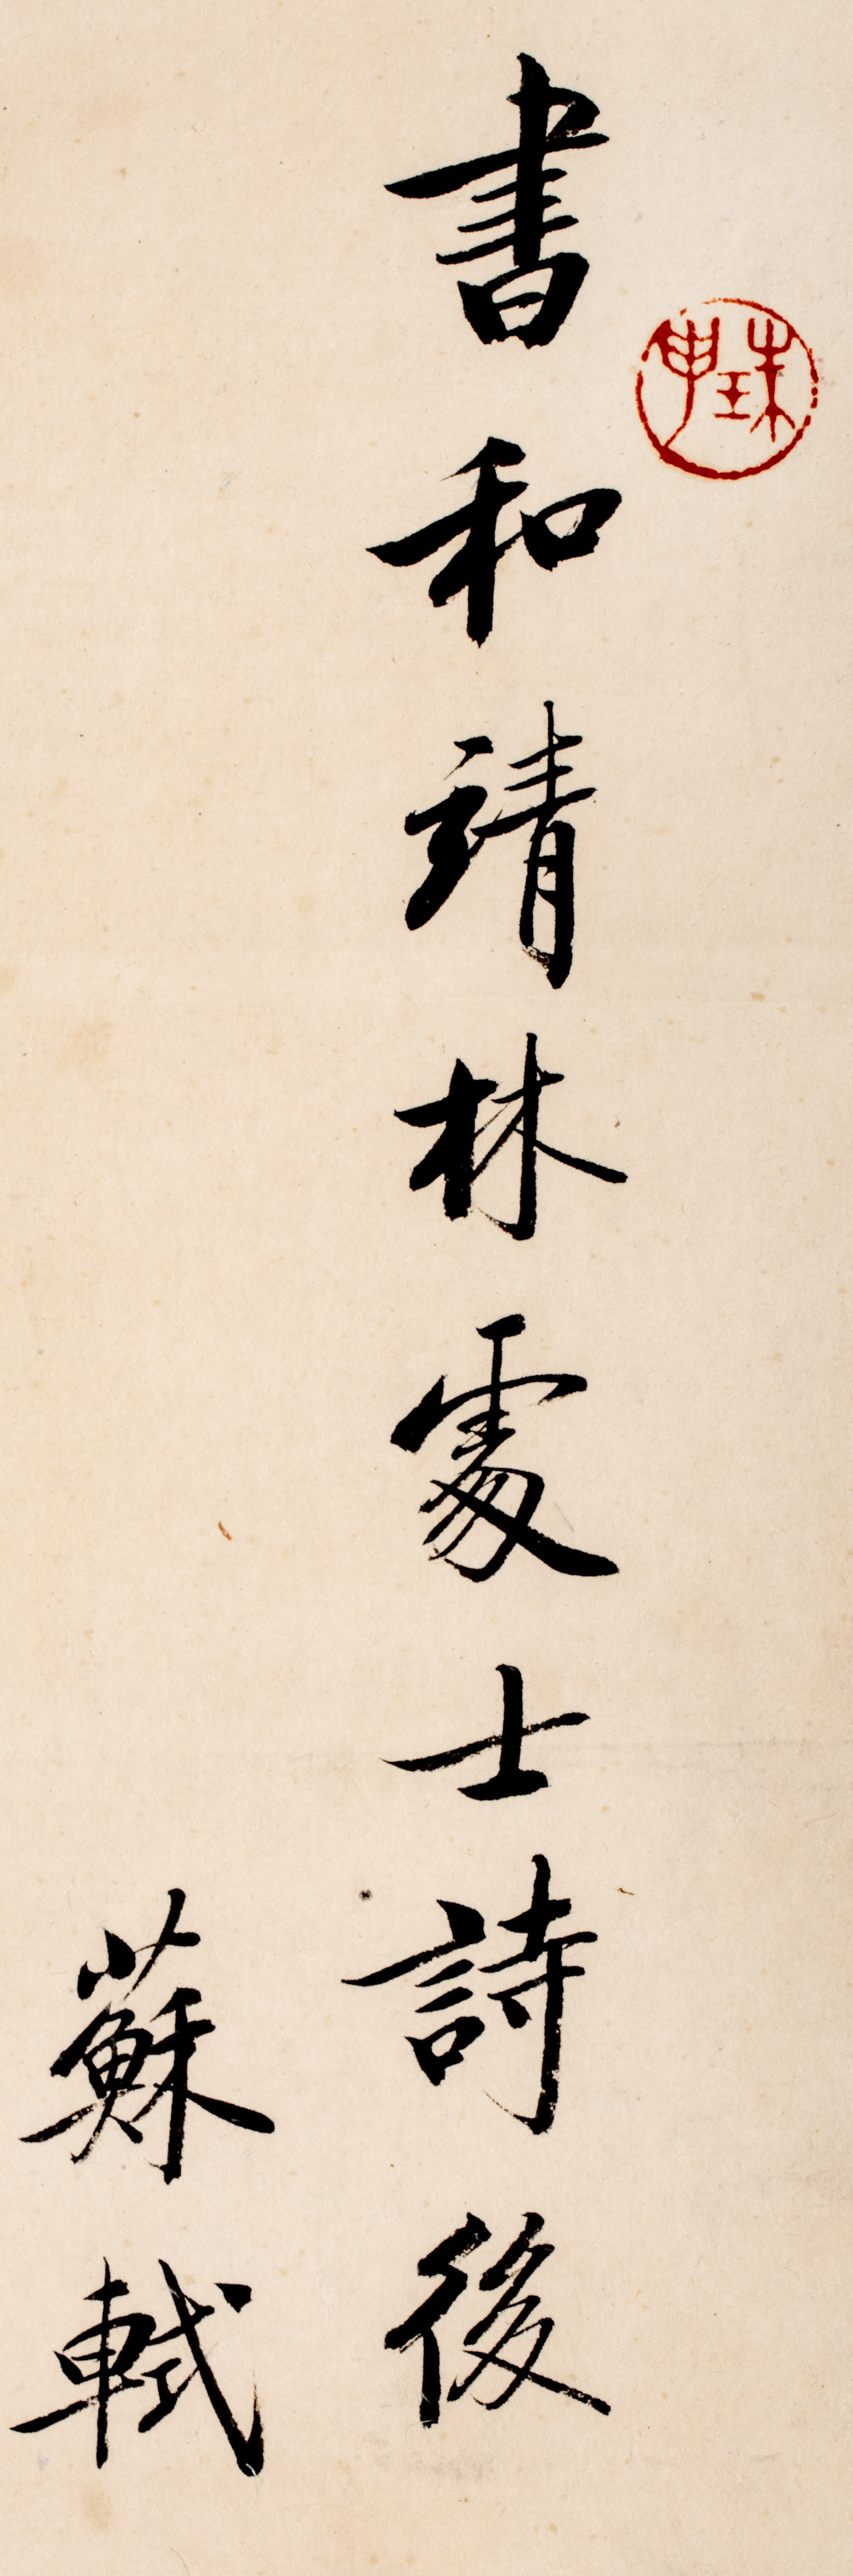 書和靖林處士詩後
蘇軾